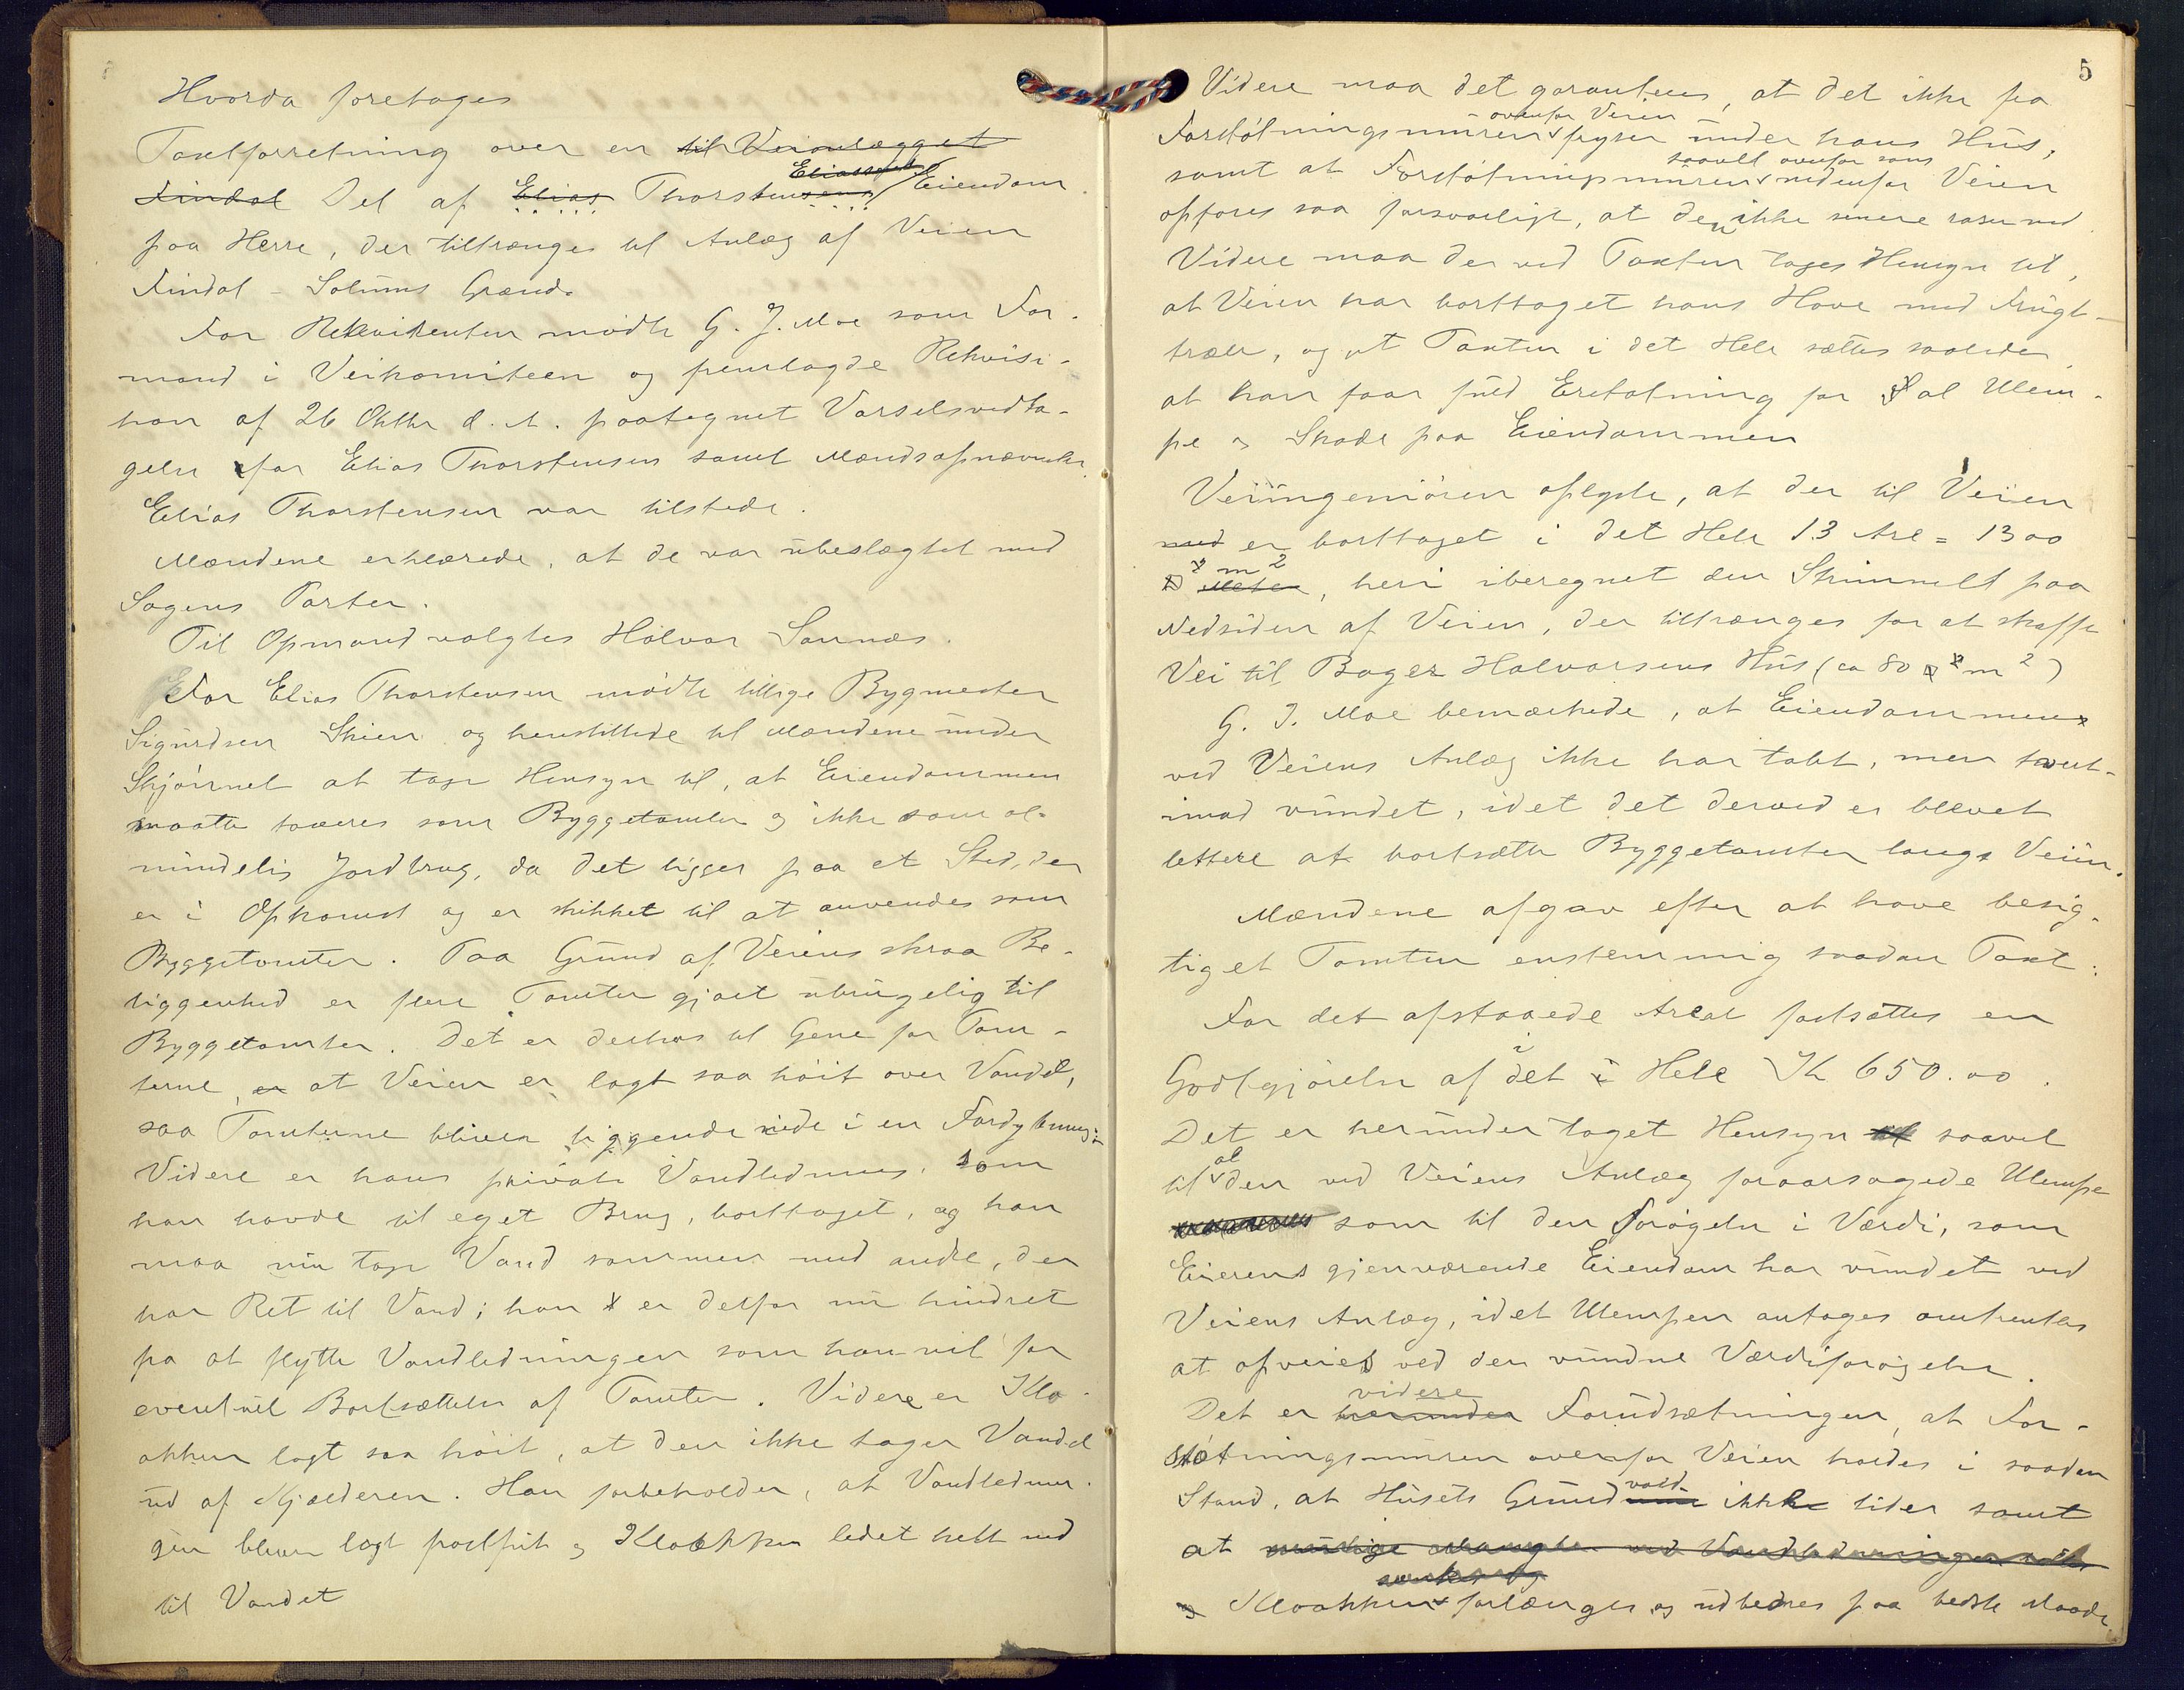 Hvorda foretages
Taxtforretning over en til Veianlægget
Findal Del af Elias Thorstensens Eliassens Eiendom
paa Herre, der tiltrænges til Anlæg af Veien
Findal - Solums Grænd.
For Rekvirenten mødte G. J. Moe som For-
mand i Veikomiteen og fremlagde Rekvisi-
tion af 26 Oktbr d. A. paategnet Varselsvedta-
gelse for Elias Thorstensen samt Mændsopnævnelse
Elias Thorstensen var tilstede.
Mændene erklærede, at de var ubeslægtet med
Sagens Parter.
Til Opmand valgtes Halvor Sannæs.
For Elias Thorstensen mødte tillige Bygmester
Sigurdsen Skien og henstillede til Mændene under
Skjønnet at tage Hensyn til, at Eiendommen
maatte taxeres som Byggetomter og ikke som al-
mindelig Jordbrug, da det ligger paa et Sted, der
er i Opkomst og er skikket til at anvendes som
Byggetomter. Paa Grund af Veiens skraa Be-
liggenhed er flere Tomter gjort ubrugelig til
Byggetomter. Det er derhos til Gene for Tom-
terne, er at Veien er lagt saa høit over Vandet,
saa Tomterne bliver liggende nede i en Fordybning.
Videre er hans private Vandledning, som
han havde til eget Brug, borttaget, og han
maa nu tage Vand sammen med andre, der
har Ret til Vand; han er derfor nu hindret
fra at flytte Vandledningen som han vil for
eventuel Bortsættelse af Tomter. Videre er Klo-
akken lagt saa høit, at den ikke tager Vandet
ud af Kjælderen. Han forbeholder, at Vandlednin-
gen bliver lagt frostfrit og Kloakken ledet helt ned
til Vandet
5
Videre maa det garanteres, at det ikke fra
ovenfor Veien
Forstøtningsmuren fryser under hans Hus,
saavel ovenfor som
samt at Forstøtningsmuren nedenfor Veien
opføres saa forsvarligt, at den ikke senere raser ned
Videre maa der ved Taxten tages Hensyn til,
at Veien har borttaget hans Have med Frugt-
træer, og at Taxten i det Hele sættes saaledes,
at han faar fuld Erstatning for al Ulem-
pe og Skade paa Eiendommen
Veiingeniøren oplyste, at der til Veien
med er borttaget i det Hele 13 Are = 1300
m2
Meter, heri iberegnet den Strimmel paa
Nedsiden af Veien, der tiltrænges for at skaffe
Vei til Bager Halvorsens Hus (ca 80 m2)
G. J. Moe bemærkede, at Eiendommen
ved Veiens Anlæg ikke har tabt, men tvert-
imod vundet, idet det derved er blevet
lettere at bortsætte Byggetomter langs Veien.
Mændene afgav efter at have besig-
tiget Tomten enstemmig saadan Taxt:
For det afstaaede Areal fastsættes en
Godtgjørelse af i det i Hele Kr 650.00.
Det er herunder taget Hensyn til saavel
til al den ved Veiens Anlæg foraarsagede Ulempe
som til den Forøgelse i Værdi, som
Eierens gjenværende Eiendom har vundet ved
Veiens Anlæg, idet Ulempen antages omtrentlig
at opveies ved den vundne Værdiforøgelse.
videre
Det er herunder Forudsætningen, at For-
støtningsmuren ovenfor Veien holdes i saadan
Stand, at Husets Grundvold ikke lider samt
at mulige Mangler ved Vandledningen rettes
og Kloakken forlænges og udbedres paa bedste Maade